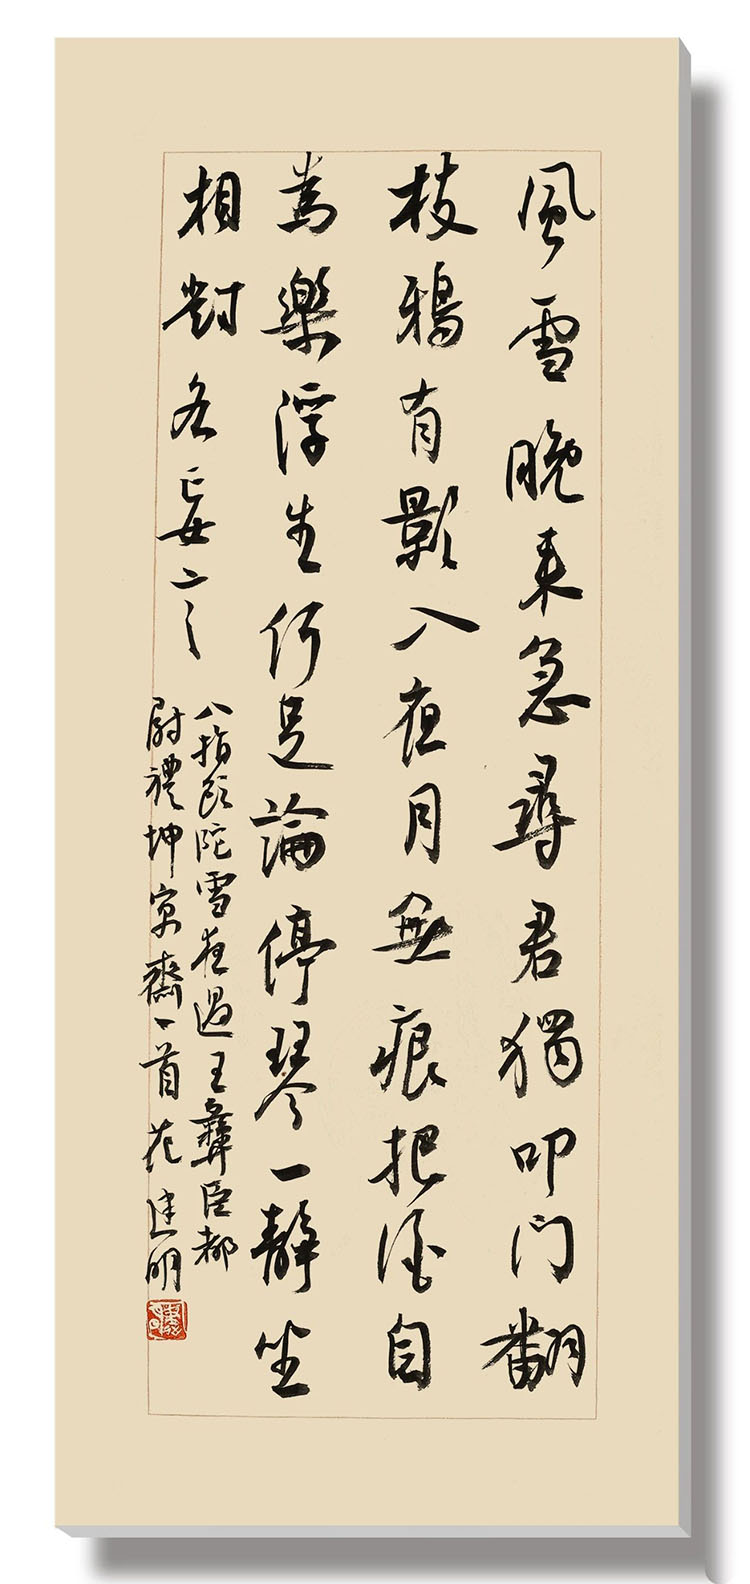 風雪晚来急尋君獨叩门翻
枝鴉有影入夜月無痕把酒自
為樂浮生何足論停琴一靜坐
相對各妄言
八指頭陀雪夜過王彝臣都
尉禮坤齋一首范建明